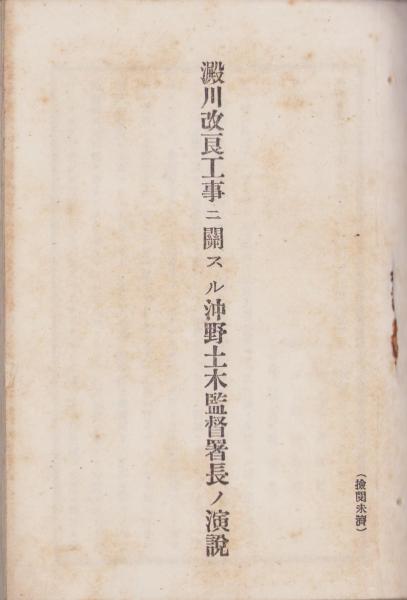 (撿閱未濟)
澱川改良工事ニ關スル沖野土木監督署長ノ演說